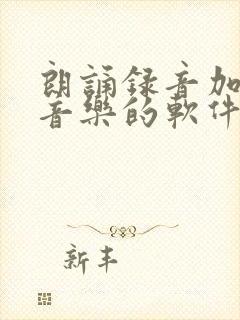 朗誦録音加
音樂的軟件
新丰